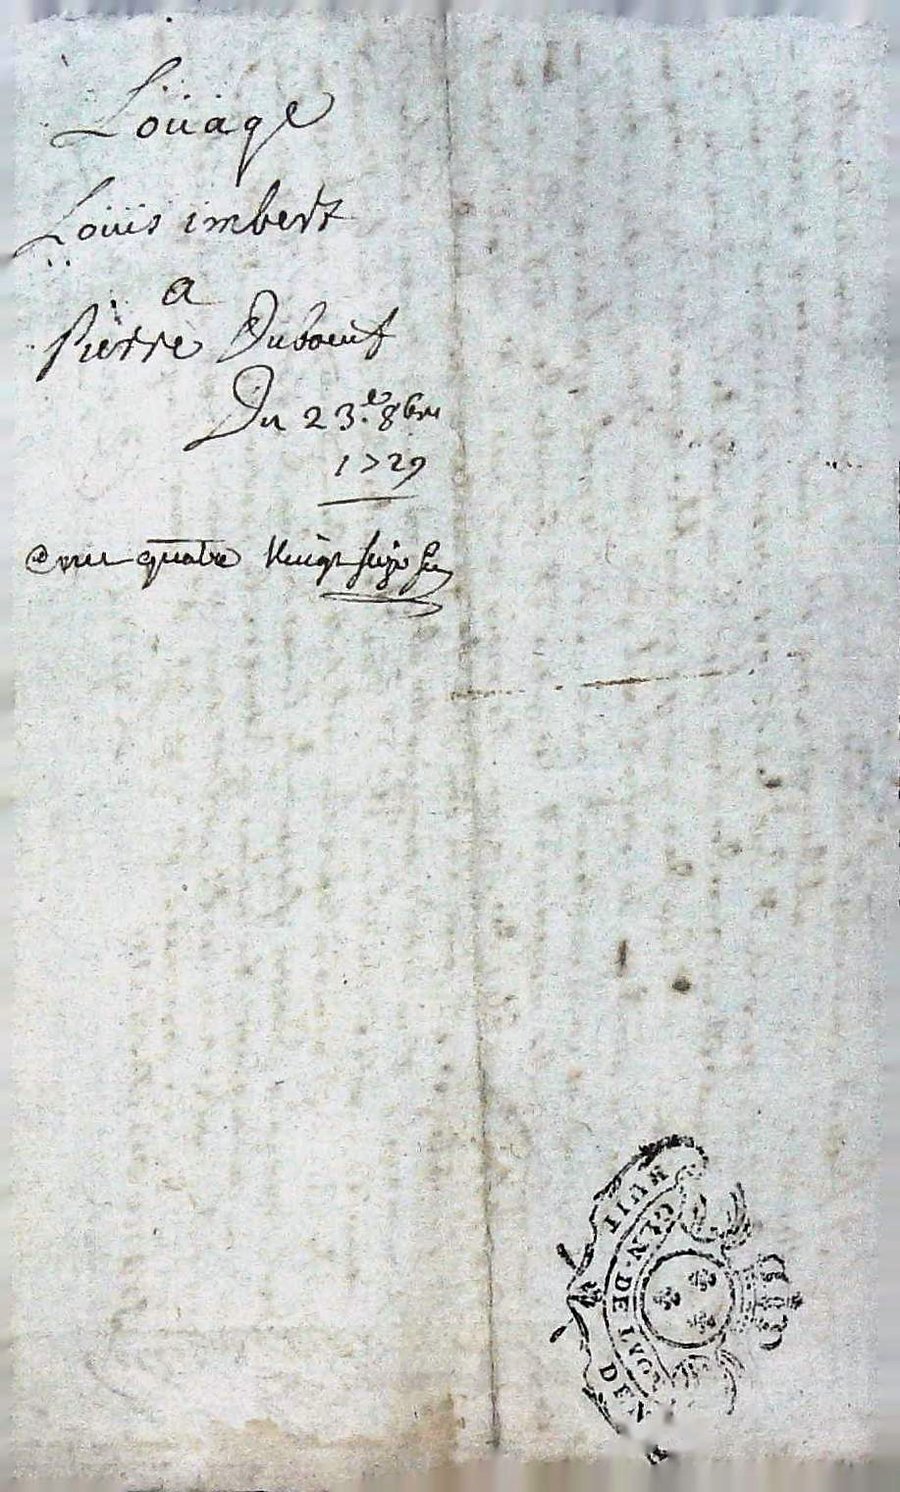 Loüage
Loüis imbert
a
Pierre Duboeuf
Du 23.e 8bre
1729
quatre Vingt seize
HUIT DEN
GEN. DE